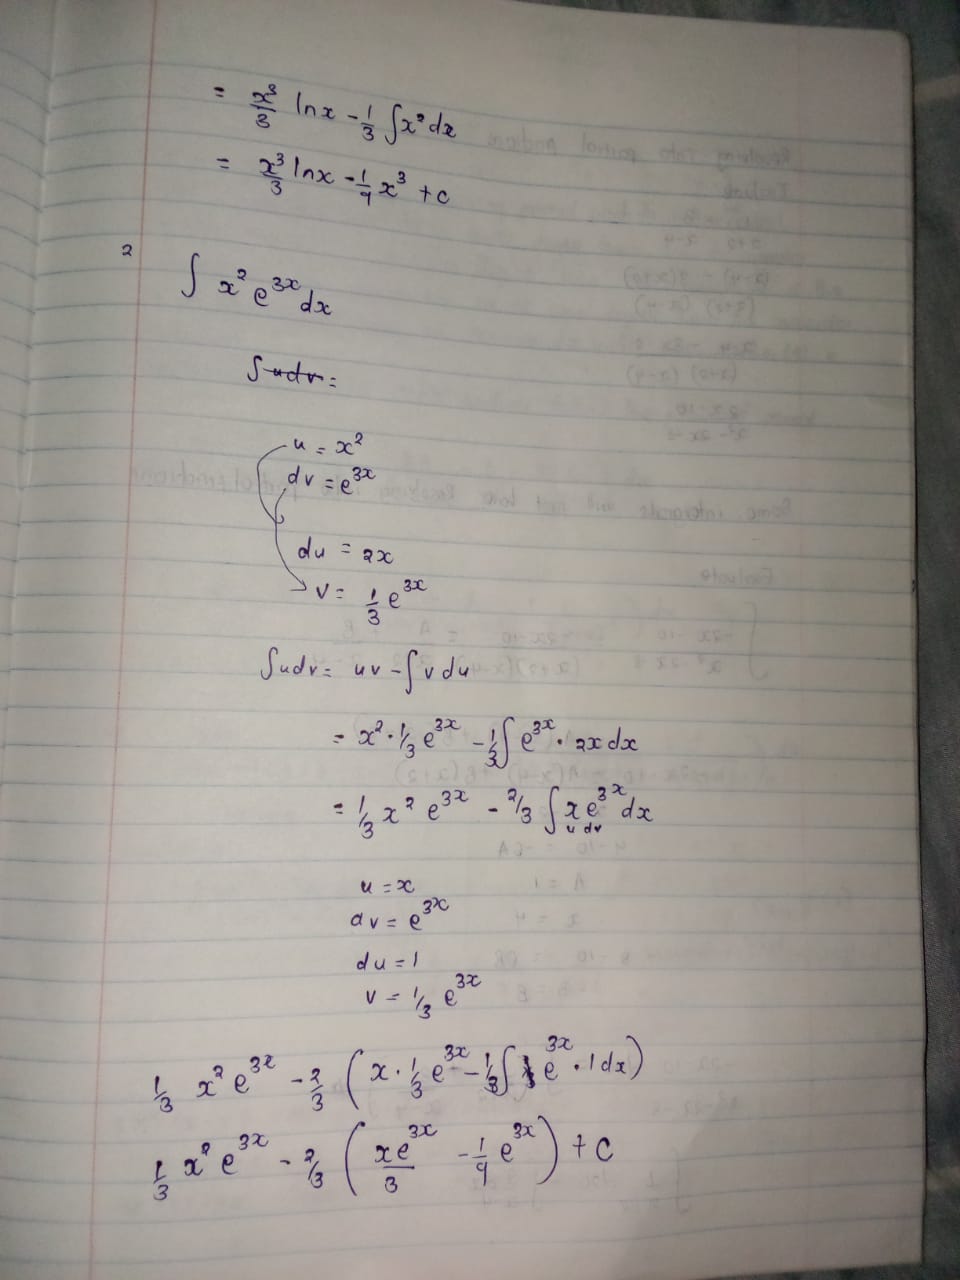 = x³/3 lnx - 1/3 ∫x²dx
= x³/3 lnx - 1/9 x³ + c
2
∫ x² e^3x dx
∫udv =
u = x²
dv = e^3x
du = 2x
v = 1/3 e^3x
∫udv = uv - ∫v du
= x² · 1/3 e^3x - 1/3 ∫ e^3x · 2x dx
= 1/3 x² e^3x - 2/3 ∫ x e^3x dx
u dv
u = x
dv = e^3x
du = 1
v = 1/3 e^3x
1/3 x² e^3x - 2/3 ( x · 1/3 e^3x - 1/3 ∫ e^3x · 1dx )
1/3 x² e^3x - 2/3 ( xe^3x/3 - 1/9 e^3x ) + c